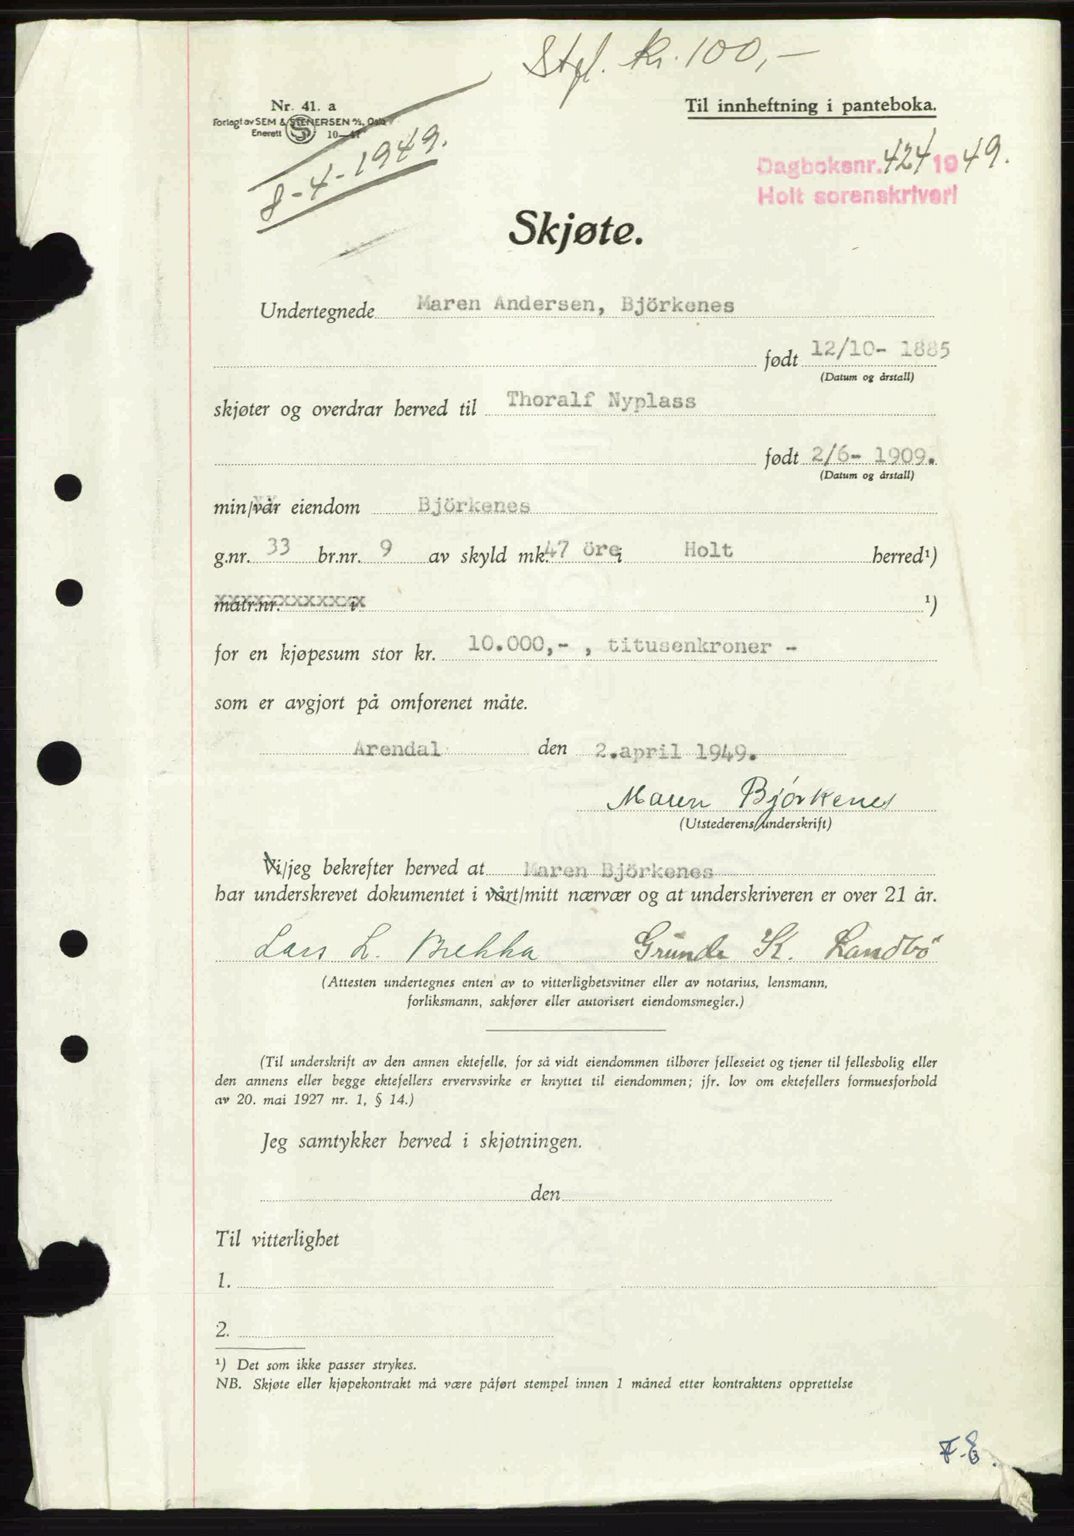 Stpl. kr. 100,-
Nr. 41. a
Forlagt av SEM & STENERSEN A/S, Oslo
Enerett 10-47
Til innheftning i panteboka.
8-4-1949.
Dagboksnr. 424 1949.
Holt sorenskriveri
Skjøte.
Undertegnede Maren Andersen, Björkenes
født 12/10- 1885
(Datum og årstall)
skjøter og overdrar herved til Thoralf Nyplass
født 2/6- 1909.
(Datum og årstall)
min/vår eiendom Björkenes
g.nr. 33 br.nr. 9 av skyld mk. 47 öre i Holt herred¹)
matr.nr. i ¹)
for en kjøpesum stor kr. 10.000,- , titusenkroner -
som er avgjort på omforenet måte.
Arendal den 2.april 1949.
Maren Björkenes
(Utstederens underskrift)
Vi/jeg bekrefter herved at Maren Björkenes
har underskrevet dokumentet i vårt/mitt nærvær og at underskriveren er over 21 år.
Lars L. Brekka Grunde K. Landbö
(Attesten undertegnes enten av to vitterlighetsvitner eller av notarius, lensmann,
forliksmann, sakfører eller autorisert eiendomsmegler.)
(Til underskrift av den annen ektefelle, for så vidt eiendommen tilhører felleseiet og tjener til fellesbolig eller
den annens eller begge ektefellers ervervsvirke er knyttet til eiendommen; jfr. lov om ektefellers formuesforhold
av 20. mai 1927 nr. 1, § 14.)
Jeg samtykker herved i skjøtningen.
den
Til vitterlighet
1.
2.
¹) Det som ikke passer strykes.
NB. Skjøte eller kjøpekontrakt må være påført stempel innen 1 måned etter kontraktens opprettelse
F.E.